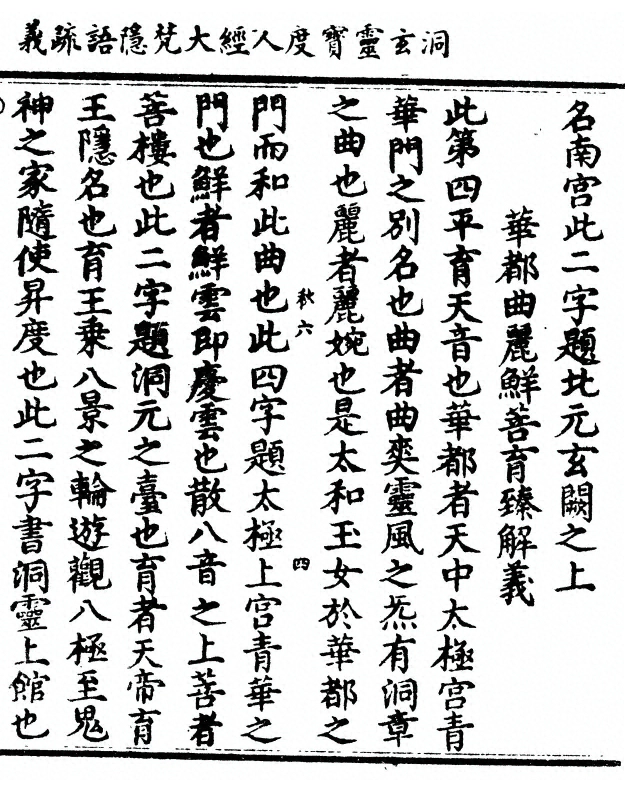 洞玄靈寳度人經大梵隱語疏義
名南宫此二字題北元玄闕之上
華都曲麗鮮菩育臻解義
此第四平育天音也華都者天中太極宮青
華門之別名也曲者曲奕靈風之炁有洞章
之曲也麗者麗婉也是太和玉女於華都之
秋六
四
門而和此曲也此四字題太極上宮青華之
門也鮮者鮮雲即慶雲也散八音之上菩者
菩樓也此二字題洞元之臺也育者天帝育
王隱名也育王乗八景之輪遊觀八極至鬼
神之家隨使昇度也此二字書洞靈上館也